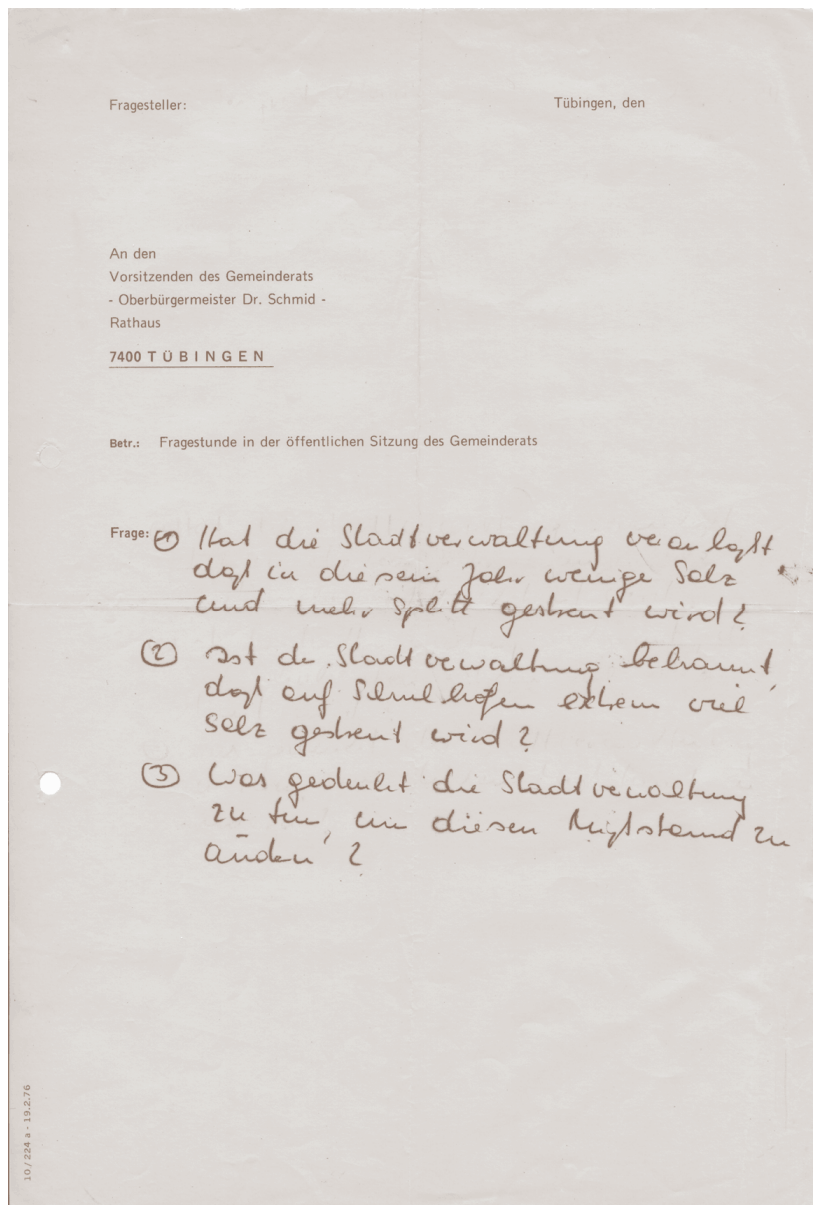 Fragesteller:
Tübingen, den
An den
Vorsitzenden des Gemeinderats
- Oberbürgermeister Dr. Schmid -
Rathaus
7400 TÜBINGEN
Betr.: Fragestunde in der öffentlichen Sitzung des Gemeinderats
Frage: ① Hat die Stadtverwaltung veranlaßt
daß in diesem Jahr weniger Salz
und mehr Splitt gestreut wird?
② Ist der Stadtverwaltung bekannt,
daß auf Schulhöfen extrem viel
Salz gestreut wird?
③ Was gedenkt die Stadtverwaltung
zu tun, um diesen Mißstand zu
ändern?
10/224 a - 19.2.76